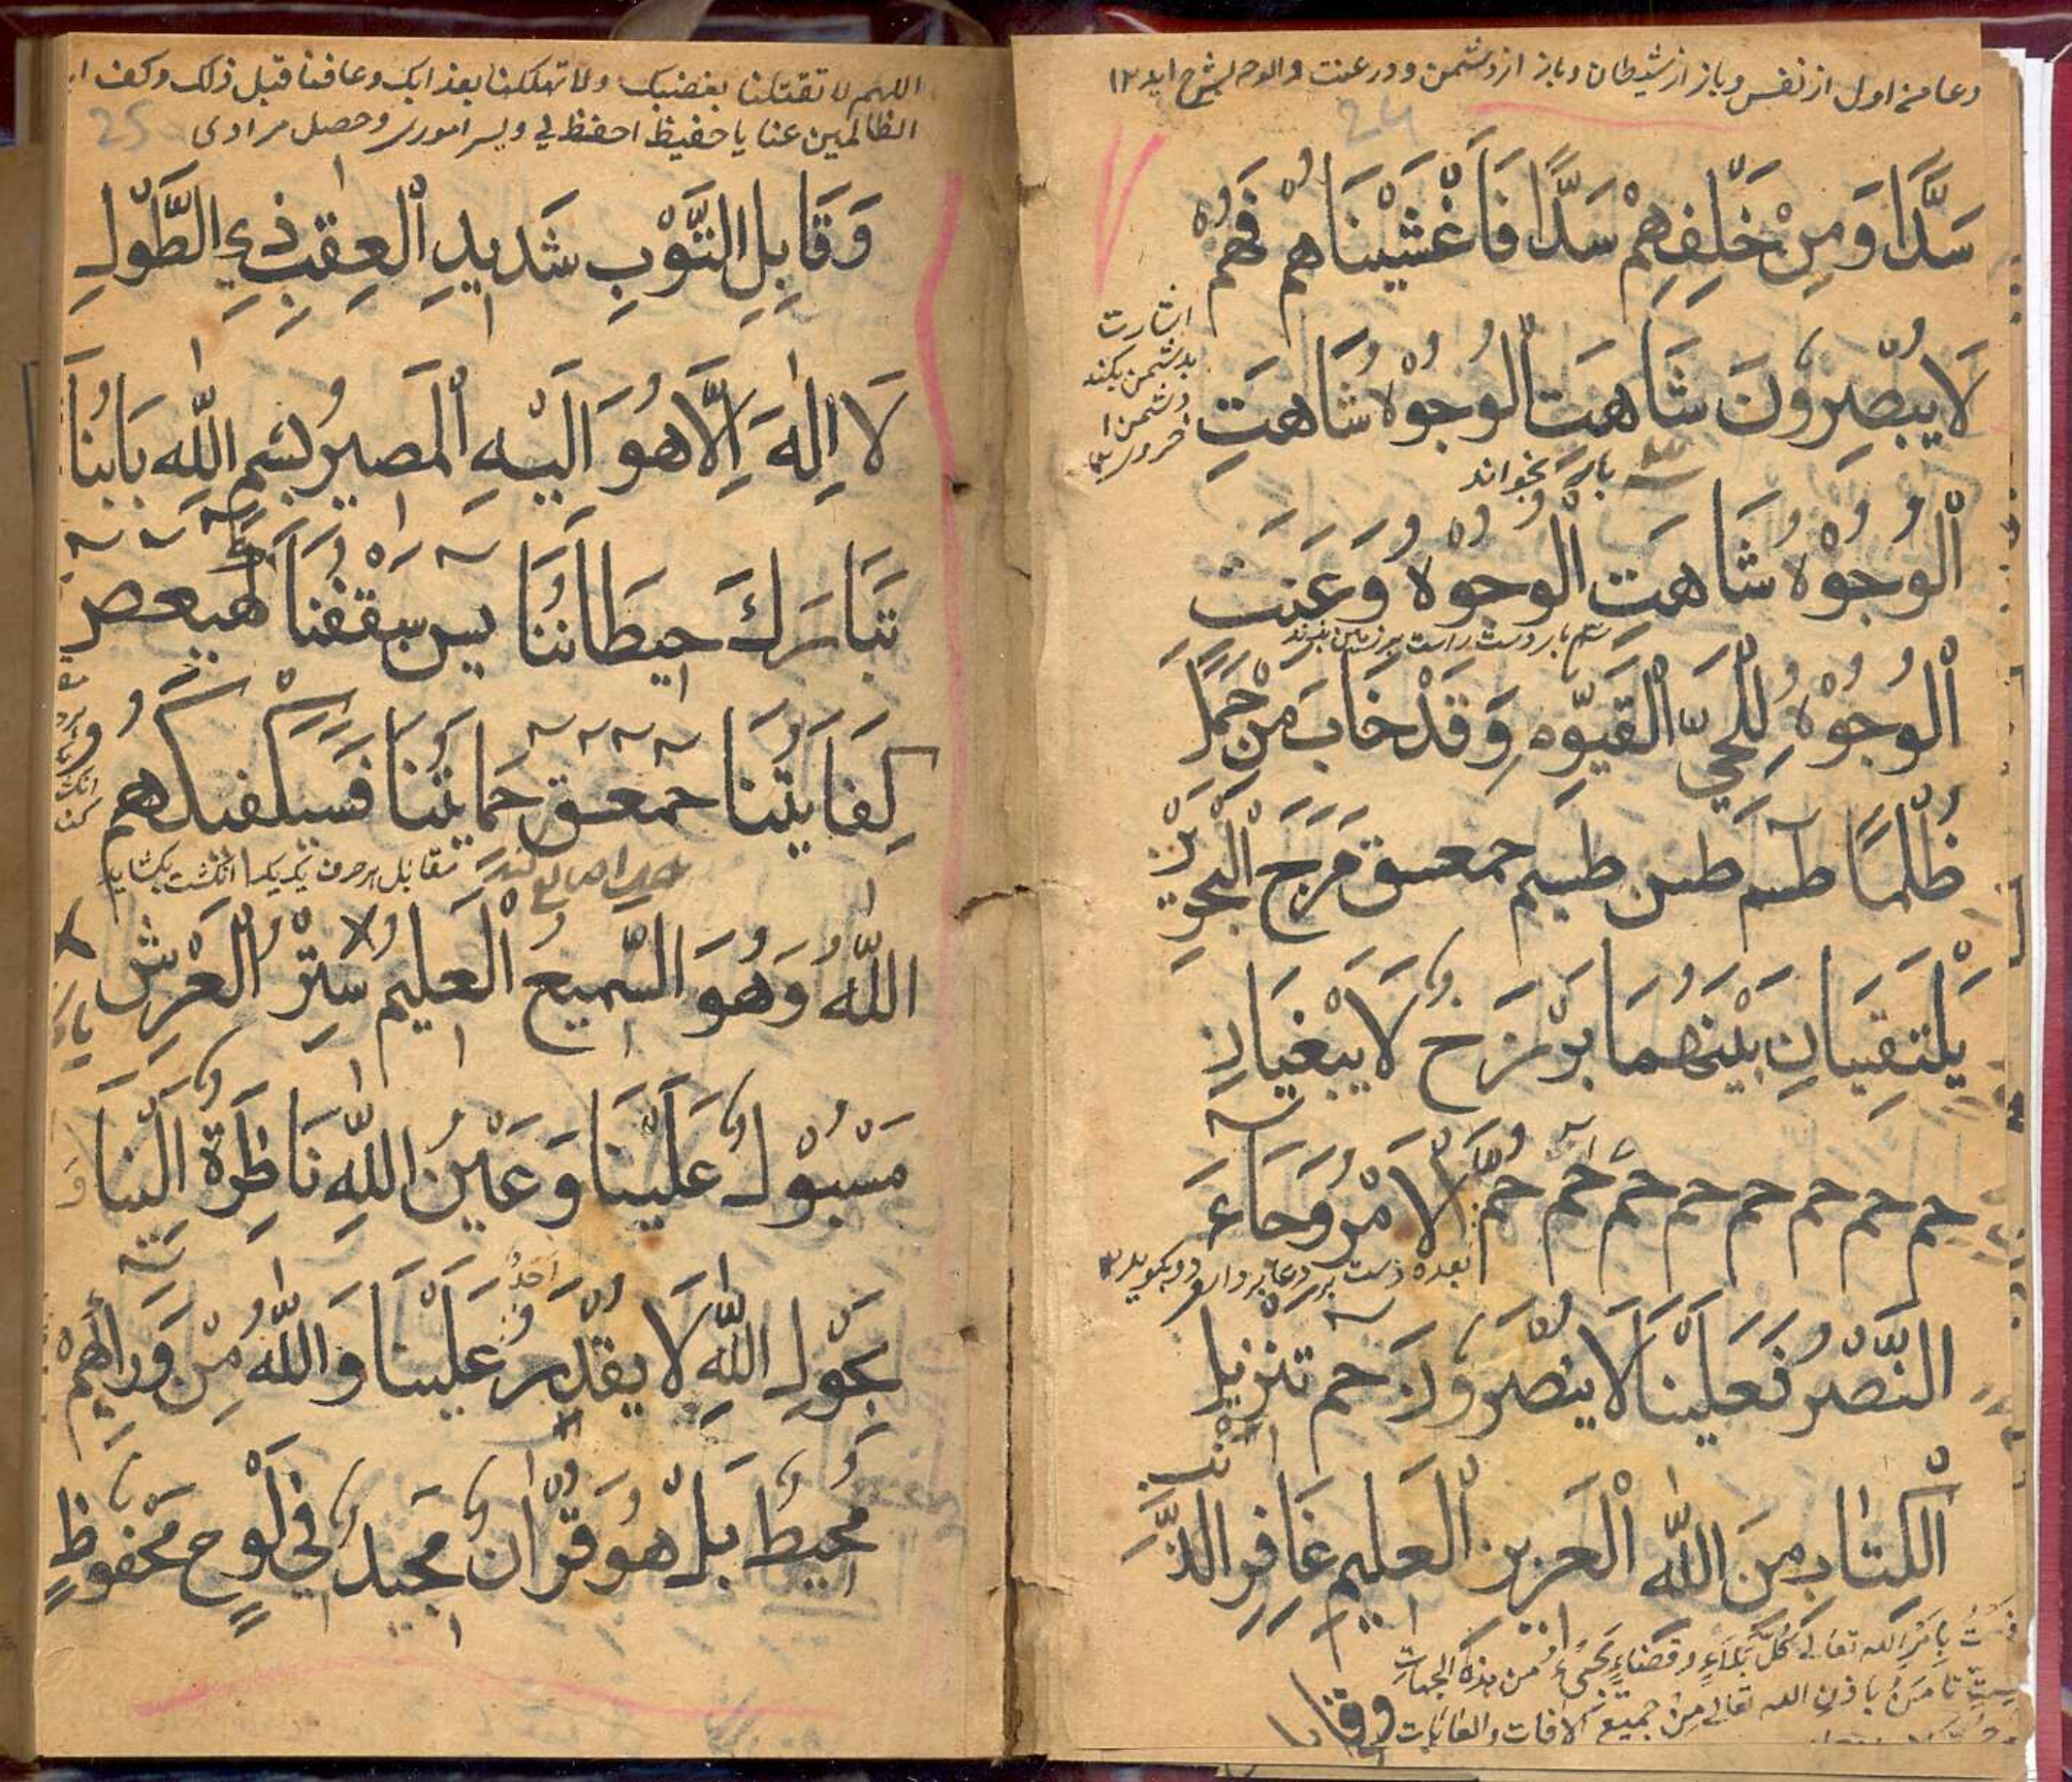 دعا من اول از نفس و باز از شیطان و باز از دشمن و در عنت الوجوه
24
سَدًّا وَمِنْ خَلْفِهِمْ سَدًّا فَأَغْشَيْنَاهُمْ فَهُمْ
اشارت
بدشمن بکند
لَا يُبْصِرُونَ شَاهَتِ الْوُجُوْهُ شَاهَتِ
بار بخواند
الْوُجُوْهُ شَاهَتِ الْوُجُوْهُ وَعَنَتِ
سه بار دست راست بر زمین بزند
الْوُجُوْهُ لِلْحَيِّ الْقَيُّوْمِ وَقَدْ خَابَ مَنْ حَمَلَ
ظُلْمًا طسم طس طسم حمعسق مَرَجَ الْبَحْرَيْنِ
يَلْتَقِيَانِ بَيْنَهُمَا بَرْزَخٌ لَا يَبْغِيَانِ
حم حم حم حم حم حم حم حم حُمَّ الْاَمْرُ وَجَاءَ
بعده دست بر
النَّصْرُ فَعَلَيْنَا لَا يُنْصَرُوْنَ حم تنزيل
الْكِتَابِ مِنَ اللّٰهِ الْعَزِيزِ الْعَلِيمِ غَافِرِ الذَّنْبِ
بِاَمْرِ الله تعالى كُلَّ بَلَاءٍ وقَضَاءٍ من هذه الجهات
باذن الله تعالى من جميع الافات والعاهات
وقابل
اللهم لا تقتلنا بغضبك ولا تهلكنا بعذابك وعافنا قبل ذلك وكف ايد
25
الظالمين عنا يا حفيظ احفظ لي ويسر اموري وحصل مرادي
وَقَابِلِ التَّوْبِ شَدِيدِ الْعِقَبِ ذِي الطَّوْلِ
لَا اِلٰهَ اِلَّا هُوَ اِلَيْهِ الْمَصِيرُ بِسْمِ اللّٰهِ بَابُنَا
تَبَارَكَ حِيطَانُنَا يس سَقْفُنَا كهيعص
كِفَايَتُنَا حمعسق حَمَايَتُنَا فَسَيَكْفِيكَهُمُ
مقابل هر حرف یک یک انگشت بکشاید
اللّٰهُ وَهُوَ السَّمِيعُ الْعَلِيمُ سِتْرُ الْعَرْشِ
مَسْبُوْلٌ عَلَيْنَا وَعَيْنُ اللّٰهِ نَاظِرَةٌ اِلَيْنَا
اَحَدٌ
بِحَوْلِ اللّٰهِ لَا يَقْدِرُ عَلَيْنَا وَاللّٰهُ مِنْ وَرَائِهِمْ
مُحِيطٌ بَلْ هُوَ قُرْاٰنٌ مَجِيدٌ فِي لَوْحٍ مَحْفُوظٍ